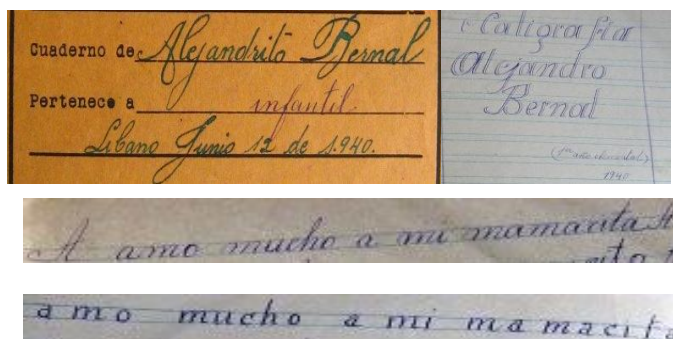 Cuaderno de Alejandrito Bernal
Pertenece a infantil
Líbano Junio 12 de 1.940.
Caligrafía
Alejandro
Bernal
(1er año elemental)
1940
A amo mucho a mi mamacita A
amo mucho a mi mamacita